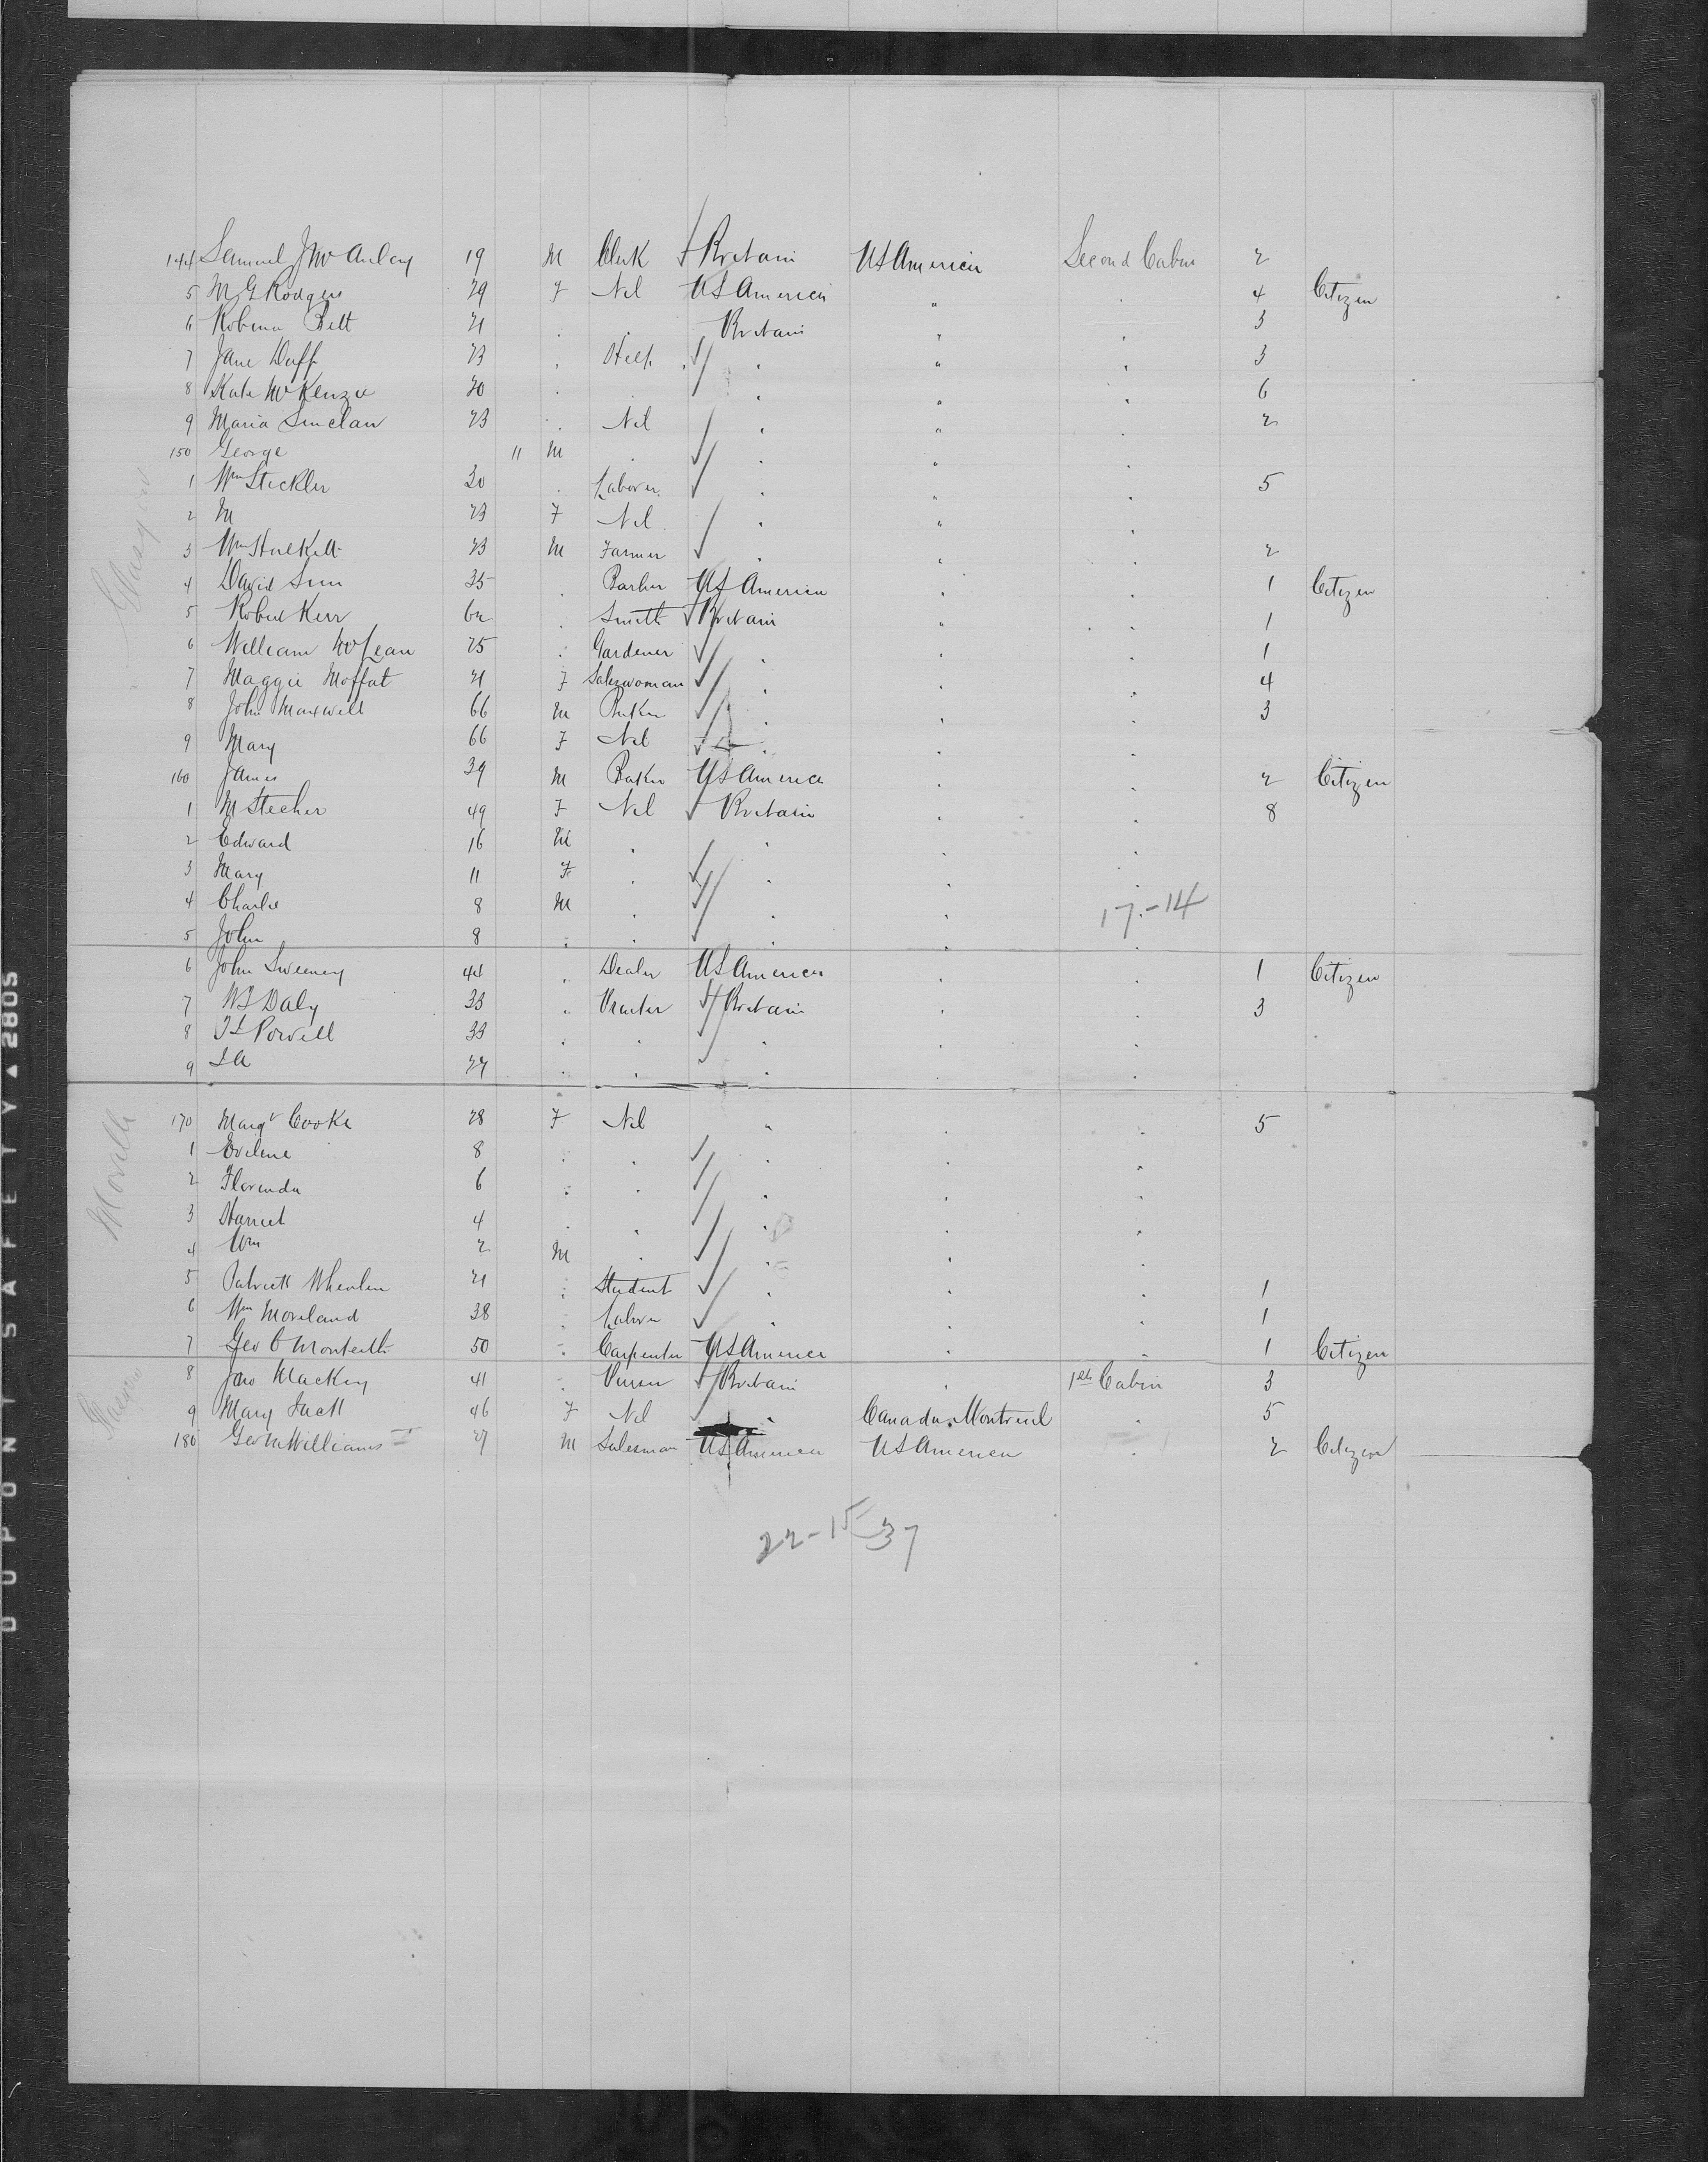 144 Samuel J McAulay 19 M Clerk Britain US America Second Cabin 2
5 M G Rodgers 29 F Nil US America " . 4 Citizen
6 Robina Bett 21 . . Britain " . 3
7 Jane Duff 23 . Help . . " . 3
8 Kate McKenzie 20 . . . " . 6
9 Maria Sinclair 23 . Nil . " . 2
150 George 11 M . . " .
1 Wm Steckler 30 . Laborer . " . 5
2 M 23 F Nil . " .
3 Wm 23 M Farmer . . . 2
4 David Sim 35 . Barber US America . . 1 Citizen
5 Robert Kerr 62 . Smith Britain " . . 1
6 William McLean 25 . Gardener . . . 1
7 Maggie Moffat 21 F Saleswoman . . . 4
8 John Maxwell 66 M Baker . . . 3
9 Mary 66 F Nil . . .
160 James 39 M Baker US America . . 2 Citizen
1 M Stecher 49 F Nil Britain . . 8
2 Edward 16 M . . .
3 Mary 11 F . . . .
4 Charlie 8 M . . . 17.-14
5 John 8 . . . . .
6 John Sweeney 44 . Dealer US America . 1 Citizen
7 Daly 33 . Printer Britain . . 3
8 Powell 33 . . . . .
9 27 . . . . .
170 Margt Cooke 28 F Nil " . . 5
1 Eveline 8 . . . . .
2 Florinda 6 . . . . .
3 Harriet 4 . . . . .
4 Wm 2 M . . . .
5 Patrick Whealen 21 . Student . . 1
6 Wm Moreland 38 . Labor . . 1
7 Geo C Monteith 50 . Carpenter US America . . 1 Citizen
8 Jno Mackey 41 . Britain . 1st Cabin 3
9 Mary Jack 46 F Nil . Canada. Montreal . 5
180 Geo McWilliams 27 M Salesman US America US America . 2 Citizen
22-15 37
Glasgow
Moville
Glasgow
DUPONT SAFETY ▲ 2805